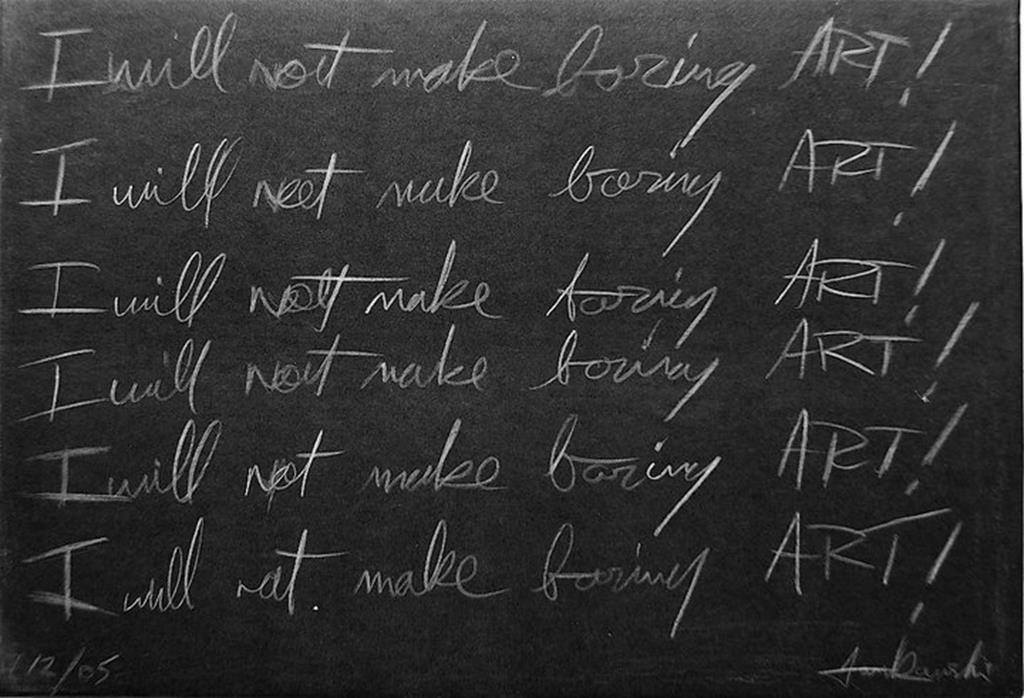 I will not make boring ART!
I will not make boring ART!
I will not make boring ART!
I will not make boring ART!
I will not make boring ART!
I will not. make boring ART!
12/05